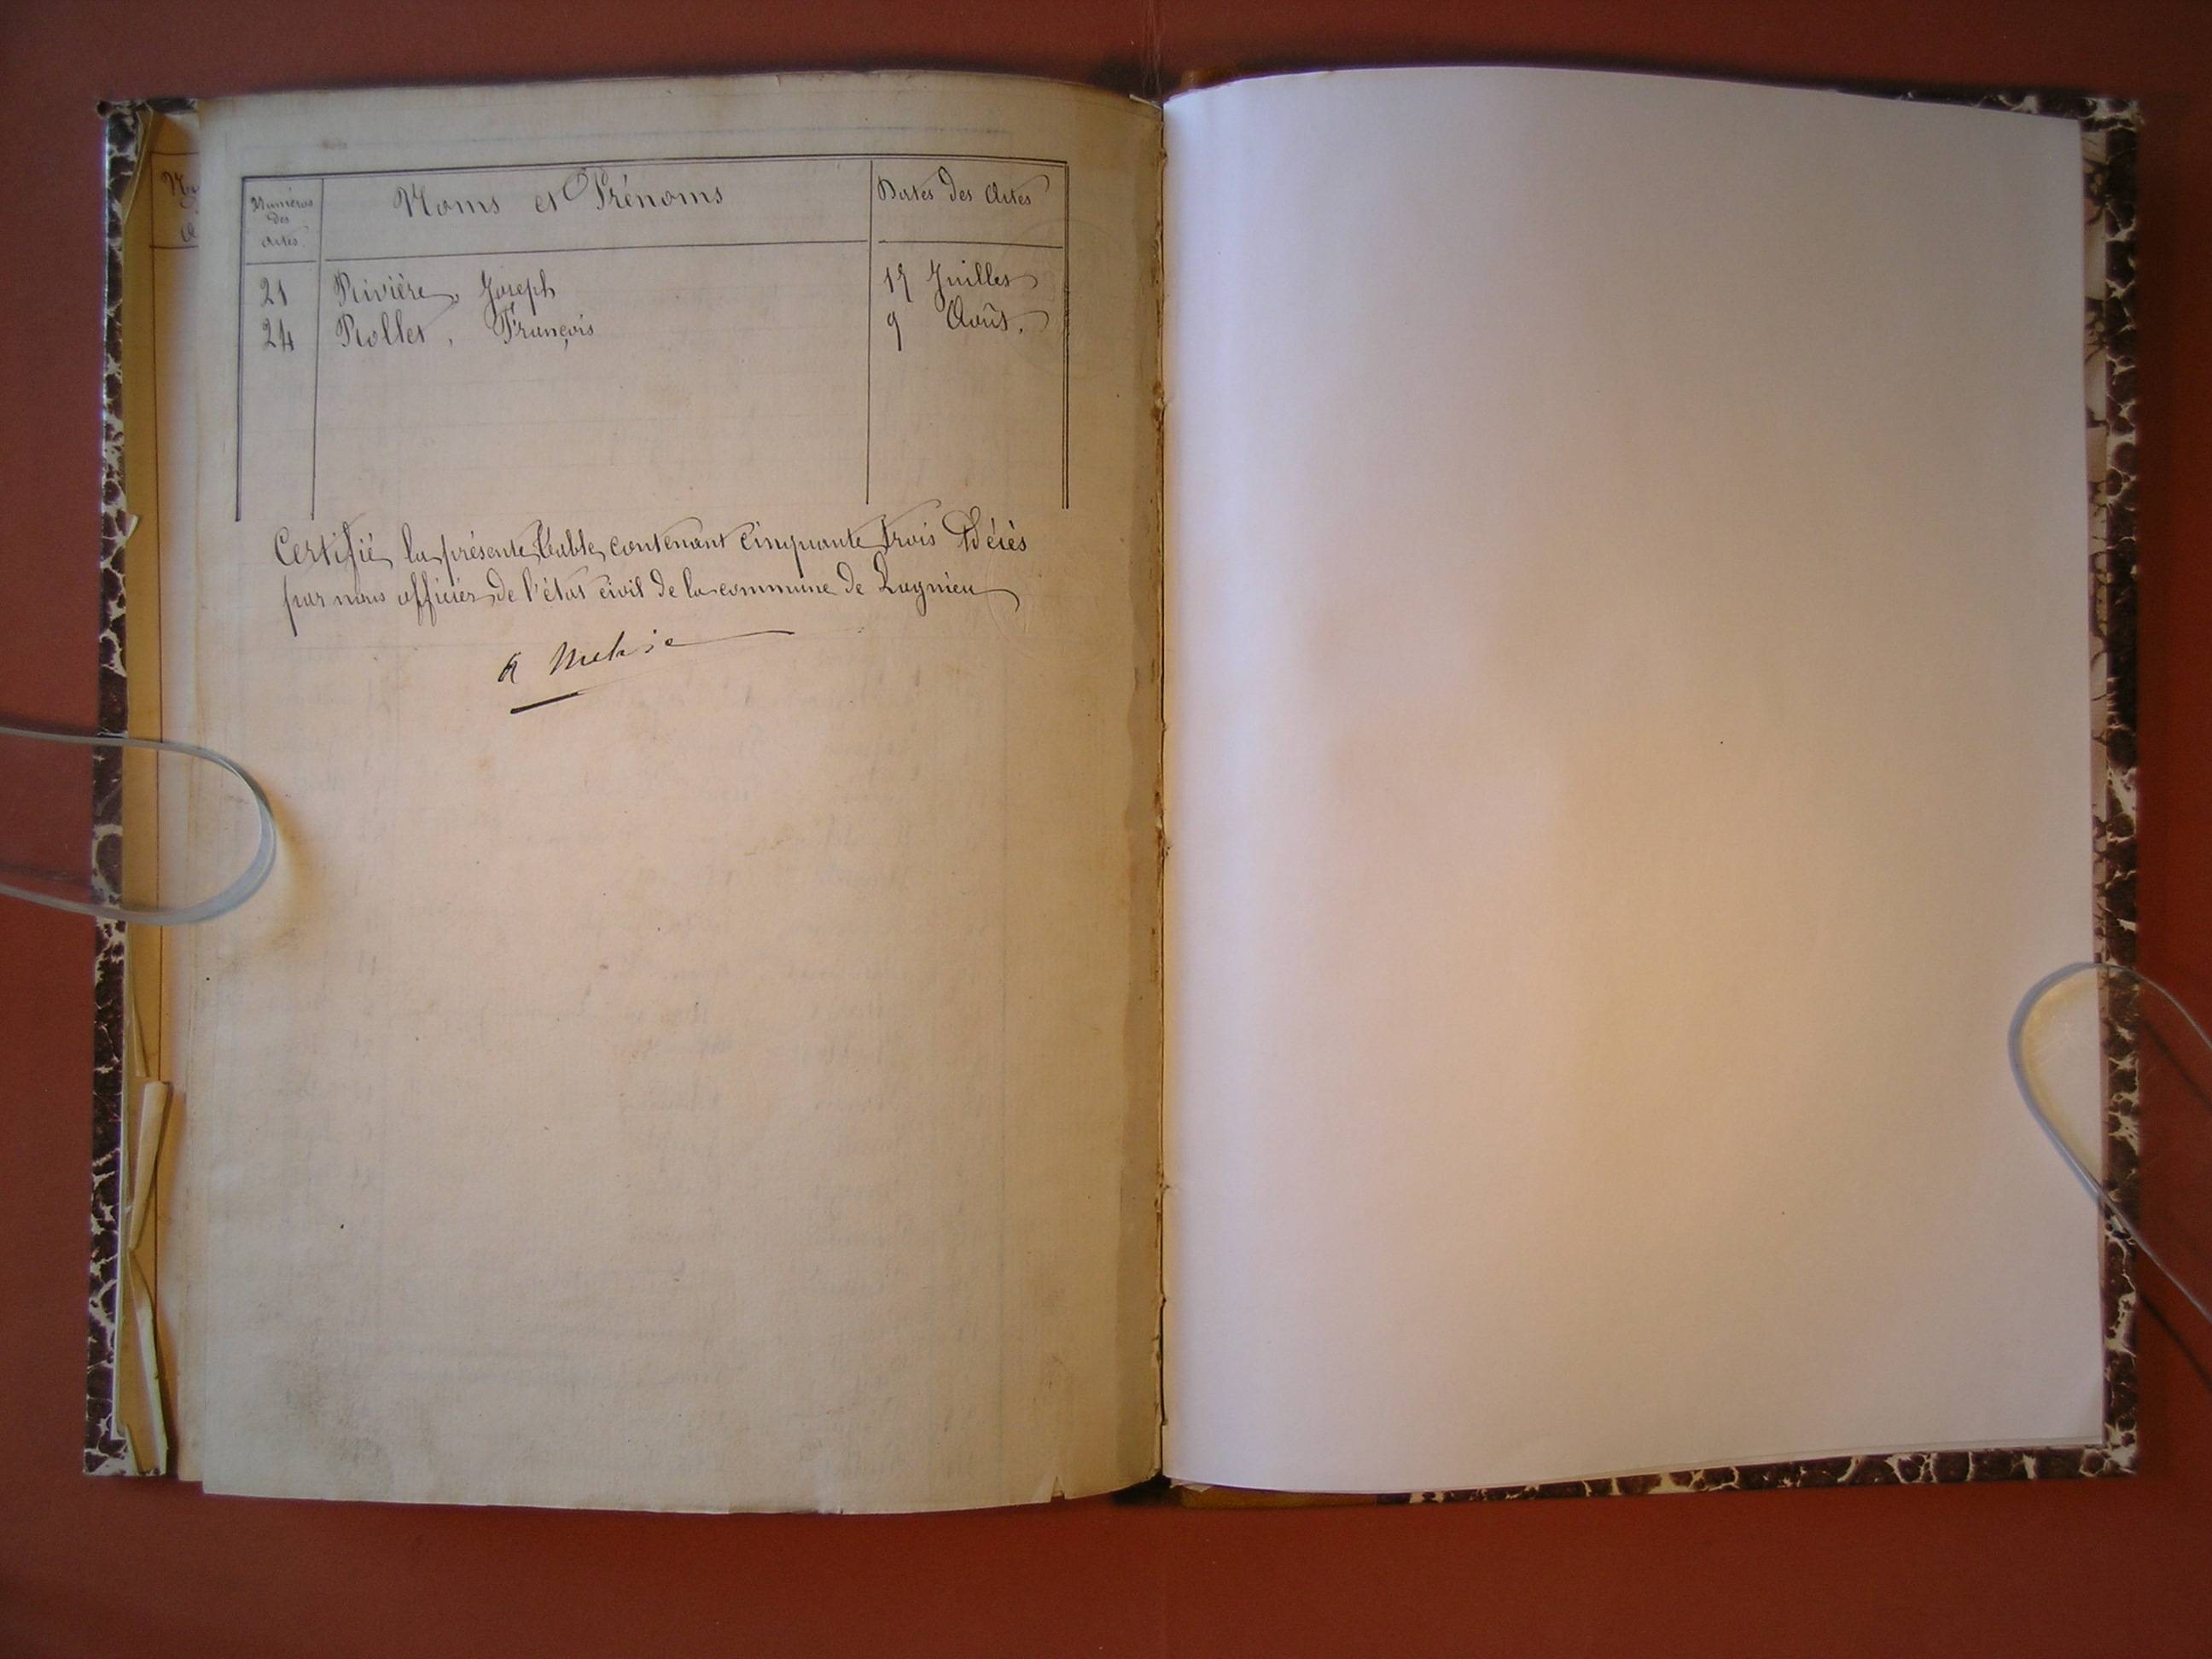 Numéros des actes
Noms et Prénoms
Dates des Actes
21 Rivière, Joseph 17 Juillet
24 Rollet, François 9 Août.
Certifié la présente table contenant cinquante trois Décès
par nous officier de l'état civil de la commune de Lagnieu